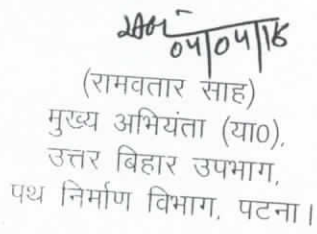 04/04/18
(रामवतार साह)
मुख्य अभियंता (या0),
उत्तर बिहार उपभाग,
पथ निर्माण विभाग, पटना।